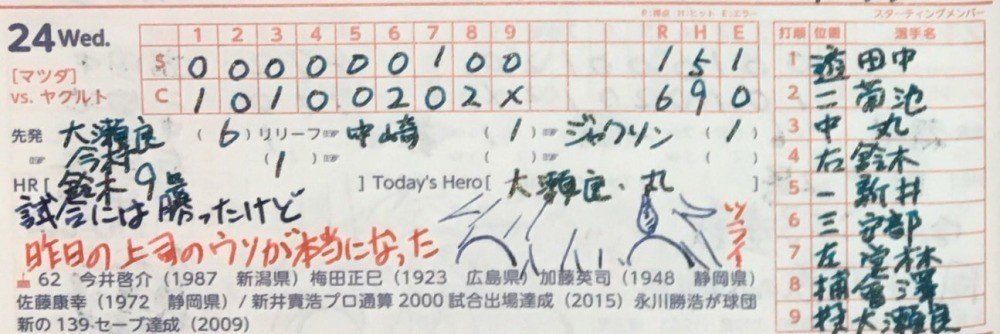 R:得点 H:ヒット E:エラー
スターティングメンバー
24 Wed.
[マツダ]
vs. ヤクルト
1 2 3 4 5 6 7 8 9 R H E
S 0 0 0 0 0 0 1 0 0 1 5 1
C 1 0 1 0 0 2 0 2 X 6 9 0
先発 大瀬良 (6) リリーフ☞ 中崎 (1) ☞ ジャクソン (1)
☞ 今村 (1) ☞ ( ) ☞ ( )
HR[ 鈴木 9号 ] Today's Hero[ 大瀬良・丸 ]
試合には勝ったけど
昨日の上司のウソが本当になった
ツライ
62 今井啓介(1987 新潟県) 梅田正巳(1923 広島県) 加藤英司(1948 静岡県)
佐藤康幸(1972 静岡県)/新井貴浩プロ通算2000試合出場達成(2015) 永川勝浩が球団
新の139セーブ達成(2009)
打順 位置 選手名
1 遊 田中
2 二 菊池
3 中 丸
4 右 鈴木
5 一 新井
6 三 安部
7 左 堂林
8 捕 會澤
9 投 大瀬良